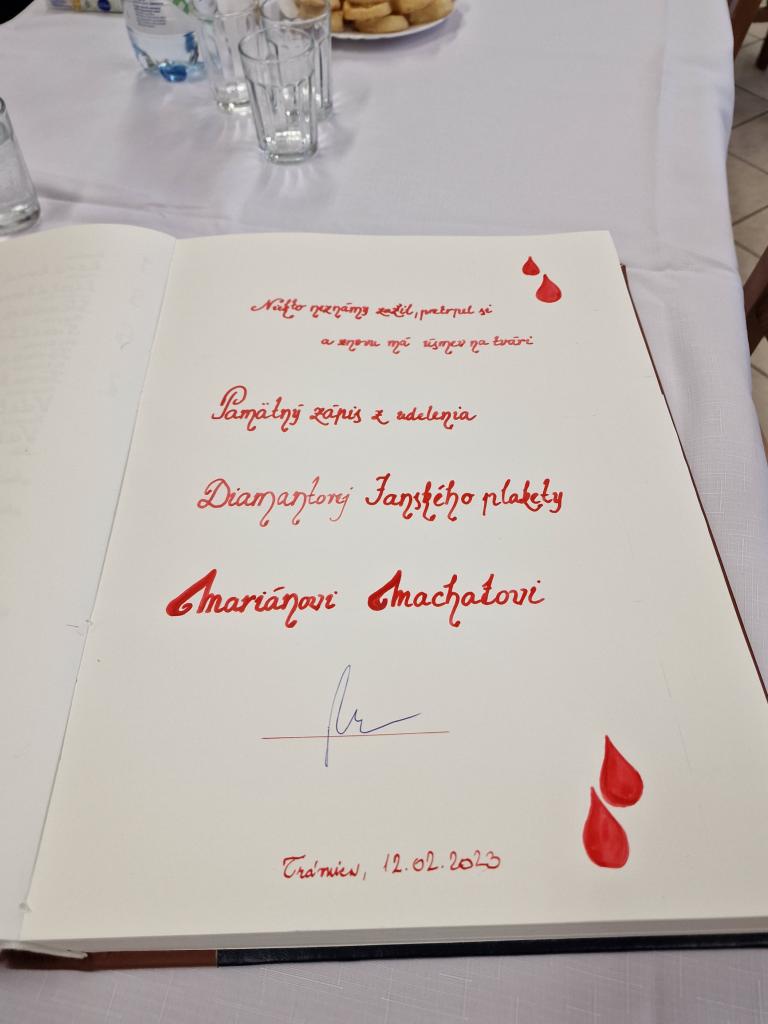 Niekto neznámy zažil, pretrpel si
a znovu má úsmev na tvári
Pamätný zápis z udelenia
Diamantovej Janského plakety
Mariánovi Machatovi
12.02.2023